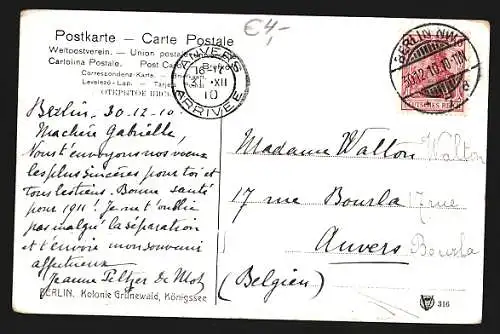 €4,-
Postkarte - Carte Postale
Weltpostverein. - Union postale
Cartolina Postale. Post Card
Correspondenz-Karte.
Levelező-Lap.
BERLIN NW
31.12.10.10-11V.
DEUTSCHES REICH
ANVERS
16-17
31 XII
10
ARRIVÉE
Berlin, 30-12-10.
Ma chère Gabrielle,
Nous t'envoyons nos vœux
les plus sincères pour toi et
tous les tiens. Bonne santé
pour 1911! Je ne t'oublie
pas malgré la séparation
et t'envoie mon souvenir
affectueux
Jeanne Peltzer de Mot
Madame Walton Walton
17 rue Bourla 17 rue
Anvers Bourla
(Belgien)
BERLIN. Kolonie Grunewald, Königssee
316